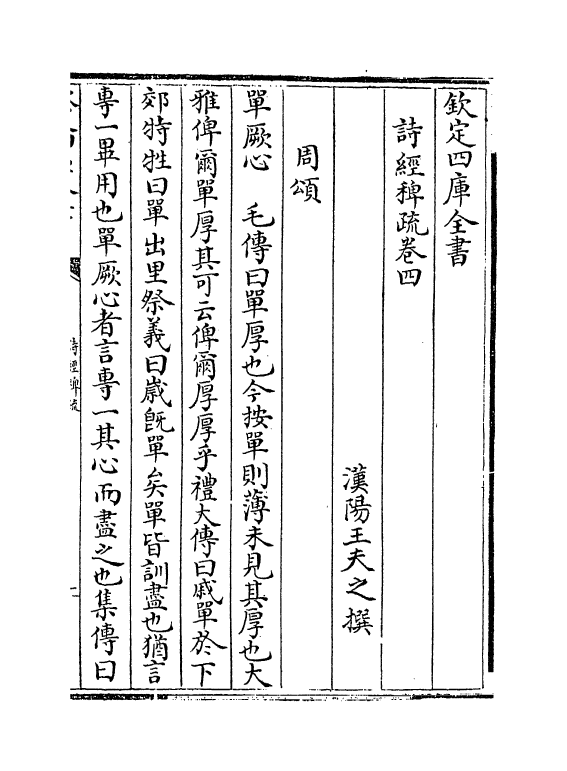 欽定四庫全書
詩經稗疏卷四
漢陽王夫之撰
周頌
單厥心　毛傳曰單厚也今按單則薄未見其厚也大
雅俾爾單厚其可云俾爾厚厚乎禮大傳曰戚單於下
郊特牲曰單出里祭義曰嵗既單矣單皆訓盡也猶言
專一畢用也單厥心者言專一其心而盡之也集傳曰
詩經稗疏